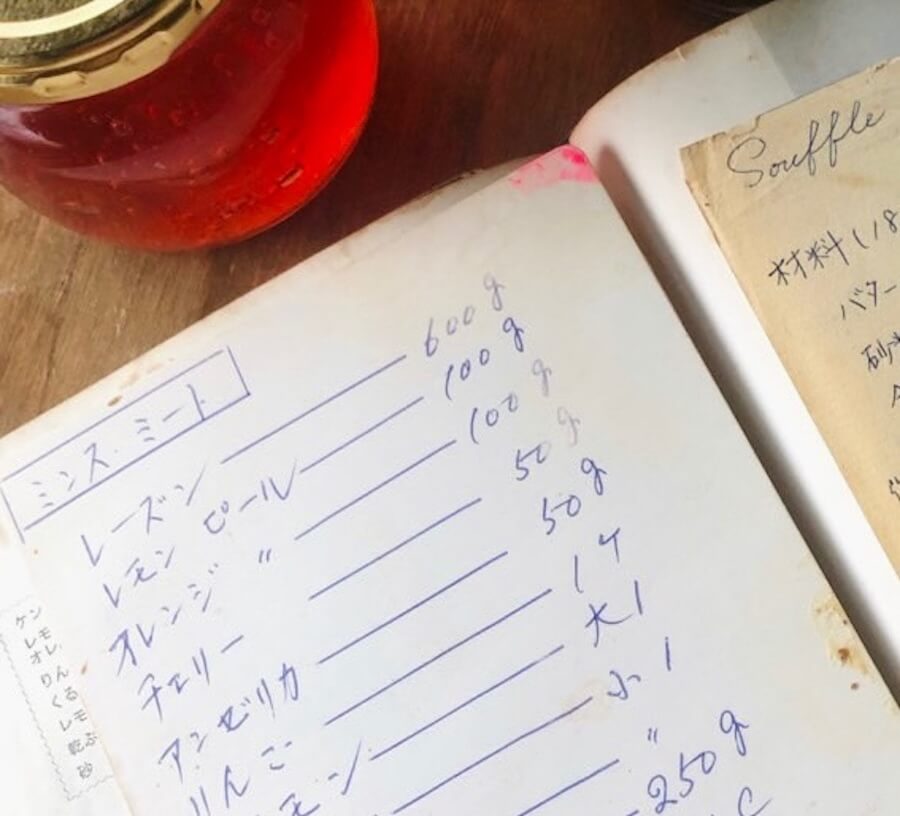 ミンス・ミート
レーズン 600g
レモン ピール 100g
オレンジ 〃 100g
チェリー 50g
アンゼリカ 50g
りんご 1ケ
モン 大1
小1
〃
250g
C
Souffle
材料(18
バター
砂
ケン
レモ
オレ
りん
くる
レモ
乾ぶ
砂